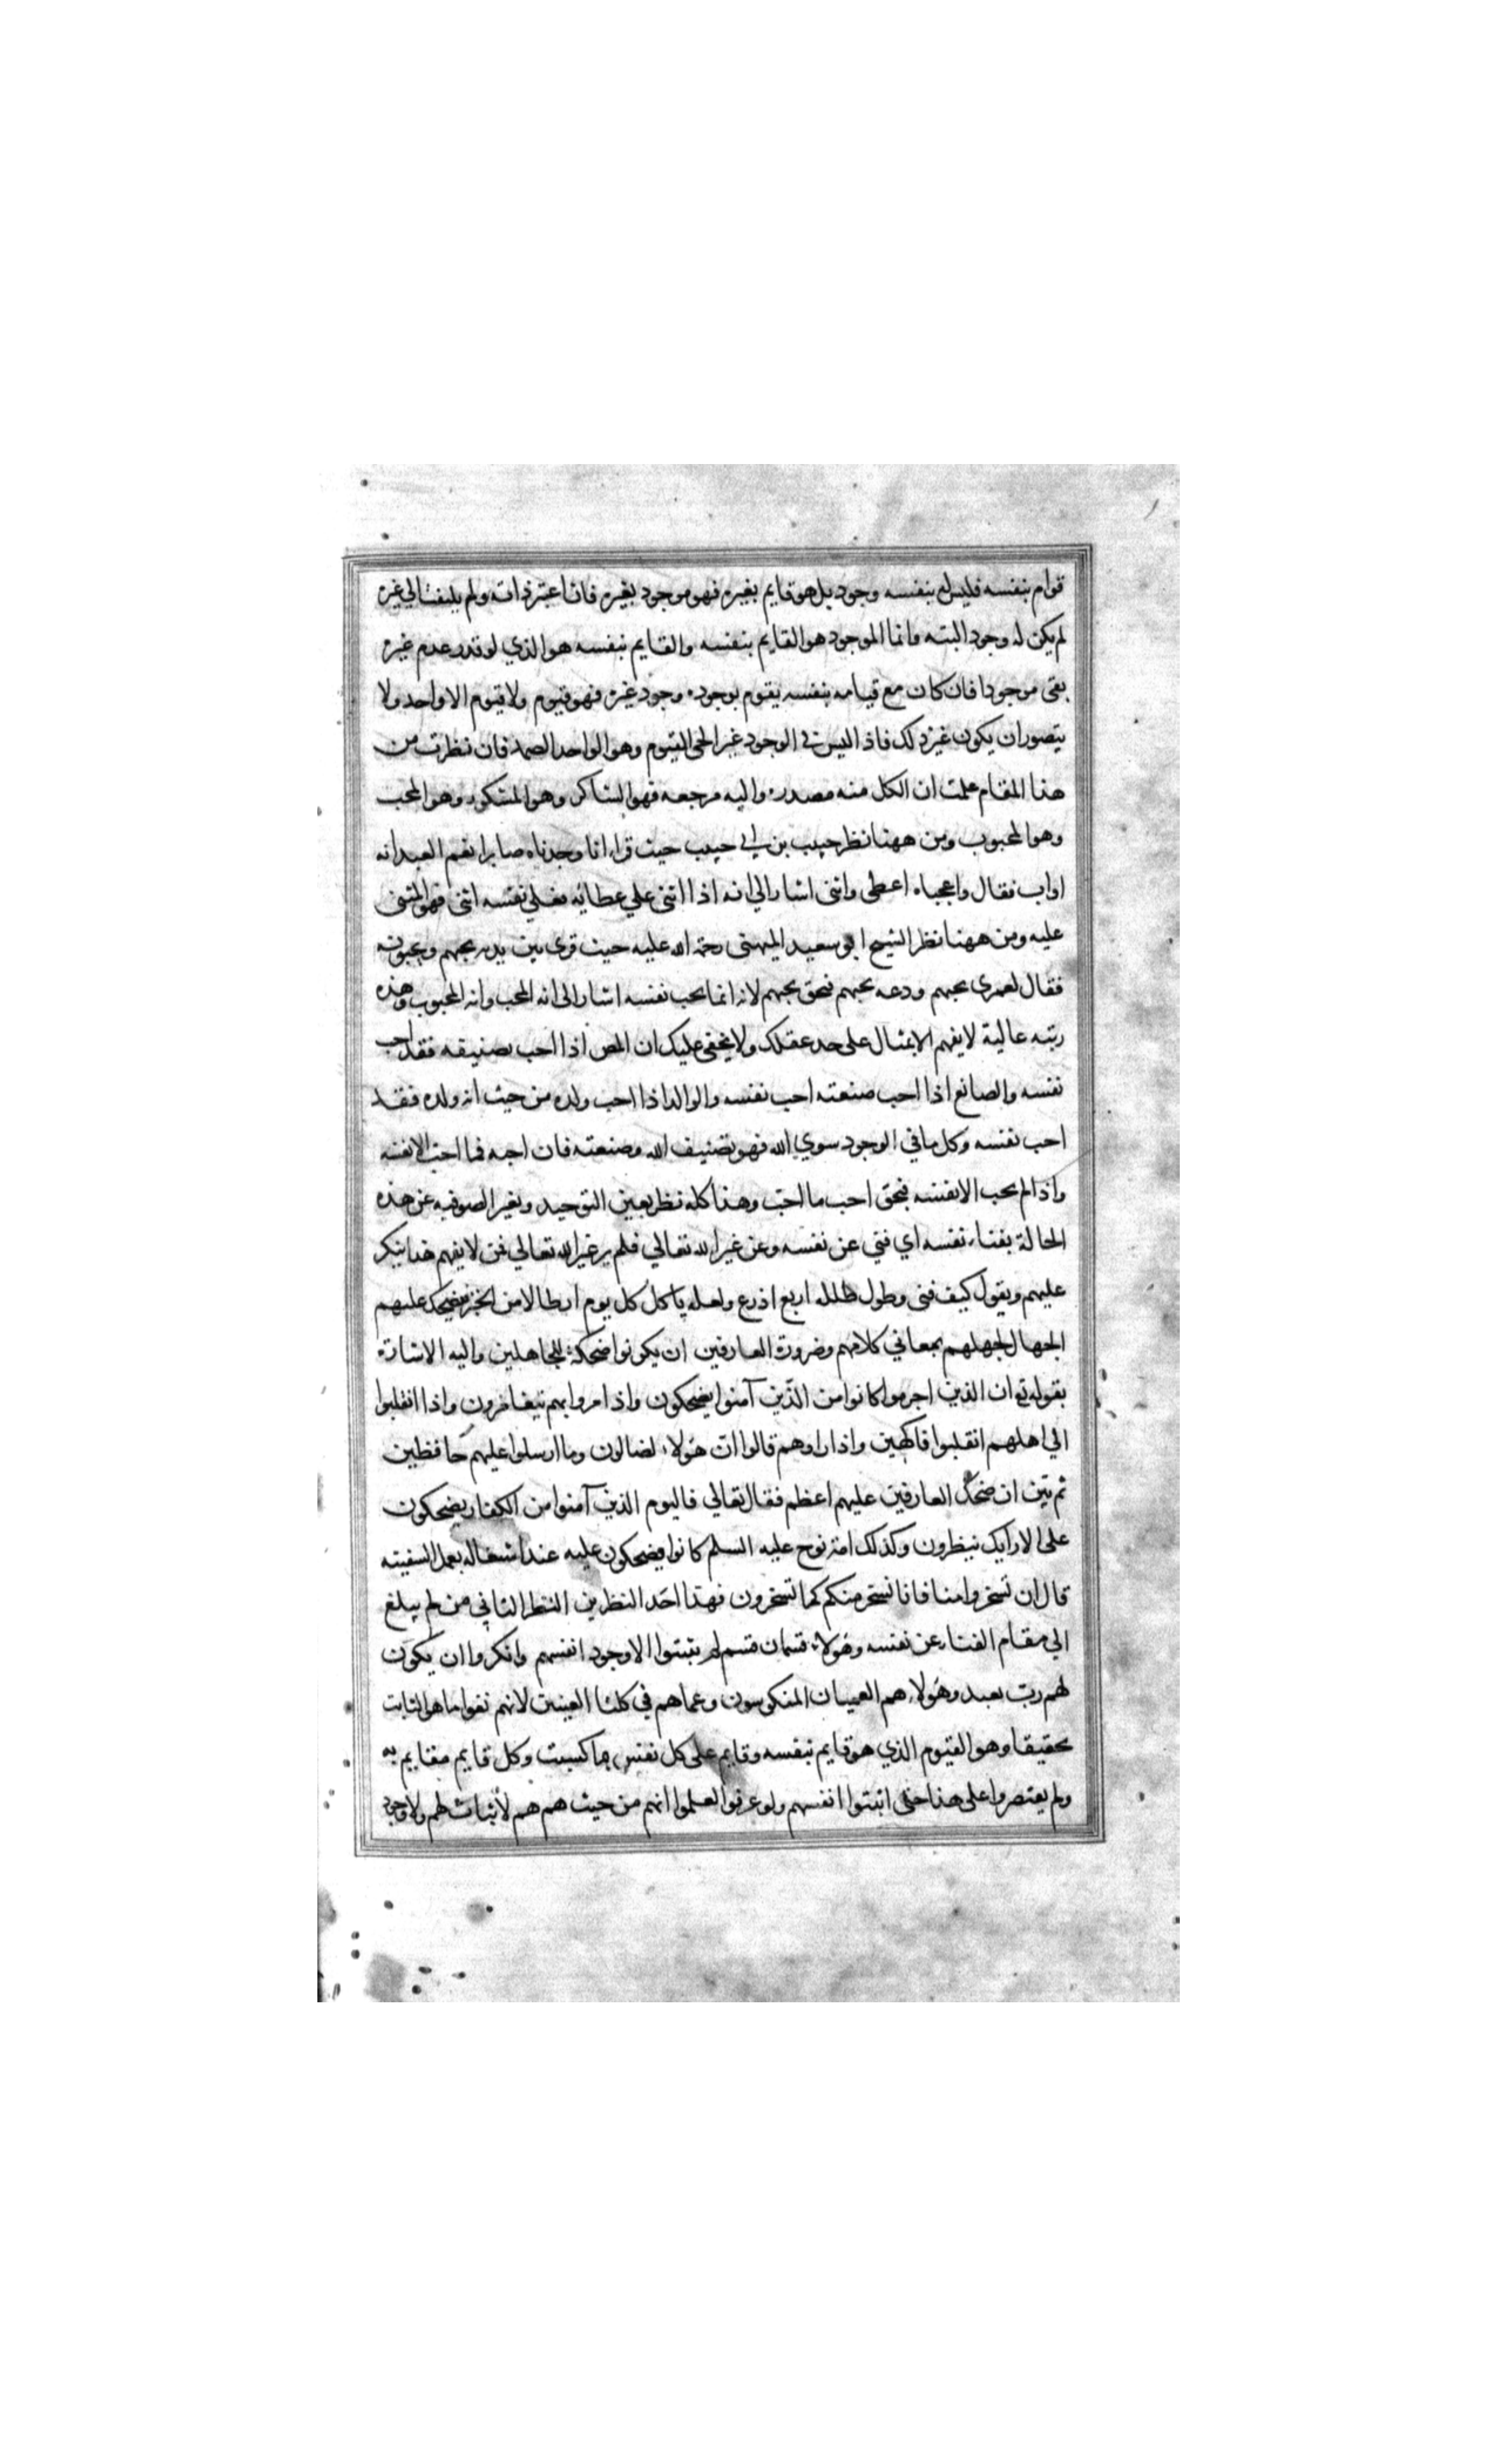 قوام بنفسه فليس له بنفسه وجود بل هو قايم بغيره فهو موجود بغيره فان اعتبر ذاته ولم يلتفت الي غيره
لم يكن له وجود البته وانما الموجود هو القايم بنفسه والقايم بنفسه هو الذي لو قدر عدم غيره
بقى موجودا فان كان مع قيامه بنفسه يقوم بوجوده وجود غيره فهو قيوم ولا قيوم الا واحد ولا
يتصور ان يكون غير ذلك فاذا ليس في الوجود غير الحي القيوم وهو الواحد الصمد فان نظرت من
هذا المقام علمت ان الكل منه مصدره واليه مرجعه فهو الشاكر وهو المشكور وهو المحب
وهو المحبوب ومن ههنا نظر حبيب بن ابي حبيب حيث قراء انا وجدناه صابرا نعم العبد انه
اواب فقال واعجباه اعطى واثنى اشار الي انه اذا اثنى علي عطائه فعلي نفسه اثنى فهو المثنى
عليه ومن ههنا نظر الشيخ ابو سعيد الميهنى رحمة الله عليه حيث قرى بين يديه يحبهم ويحبونه
فقال لعمرى يحبهم ودعه يحبهم فبحق يحبهم لانه انما يحب نفسه اشار الى انه المحب وانه المحبوب وهذه
رتبه عالية لا يفهم الا بمثال على حد عقلك ولا يخفى عليك ان المص اذا احب تصنيفه فقد احب
نفسه والصانع اذا احب صنعته احب نفسه والوالد اذا احب ولده من حيث انه ولده فقد
احب نفسه وكل ما في الوجود سوي الله فهو تصنيف الله وصنعته فان احبه فما احب الا نفسه
واذا لم يحب الا نفسه فبحق احب ما احب وهذا كله نظر بعين التوحيد وتعبر الصوفيه عن هذه
الحالة بفناء نفسه اي فني عن نفسه وعن غير الله تعالي فلم ير غير الله تعالي فمن لا يفهم هذا ينكر
عليهم ويقول كيف فنى وطول ظلله اربع اذرع ولعله ياكل كل يوم ارطالا من الخبز فيضحك عليهم
الجهال لجهلهم بمعاني كلامهم وضرورة العارفين ان يكونوا ضحكة للجاهلين واليه الاشارة
بقوله تع ان الذين اجرموا كانوا من الذين آمنوا يضحكون واذا مروا بهم يتغامزون واذا انقلبوا
الي اهلهم انقلبوا فاكهين واذا راوهم قالوا ان هولاء لضالون وما ارسلوا عليهم حافظين
ثم بين ان ضحك العارفين عليهم اعظم فقال تعالي فاليوم الذين آمنوا من الكفار يضحكون
على الارايك ينظرون وكذلك امة نوح عليه السلم كانوا يضحكون عليه عند اشتغاله بعمل السفينه
قال ان تسخروا منا فانا نسخر منكم كما تسخرون فهذا احد النظرين النظر الثاني من لم يبلغ
الي مقام الفناء عن نفسه وهولاء قسمان قسم لم يثبتوا الا وجود انفسهم وانكروا ان يكون
لهم رب يعبد وهولاء هم العميان المنكوسون وعماهم في كلتا العينين لانهم نفوا ما هو الثابت
تحقيقا وهو القيوم الذي هو قايم بنفسه وقايم على كل نفس بما كسبت وكل قايم فقايم به
ولم يقتصروا على هذا حتى اثبتوا انفسهم ولو عرفوا لعلموا انهم من حيث هم هم لا ثبات لهم ولا وجود